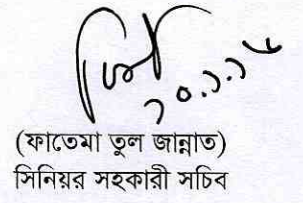 (ফাতেমা তুল জান্নাত)
সিনিয়র সহকারী সচিব